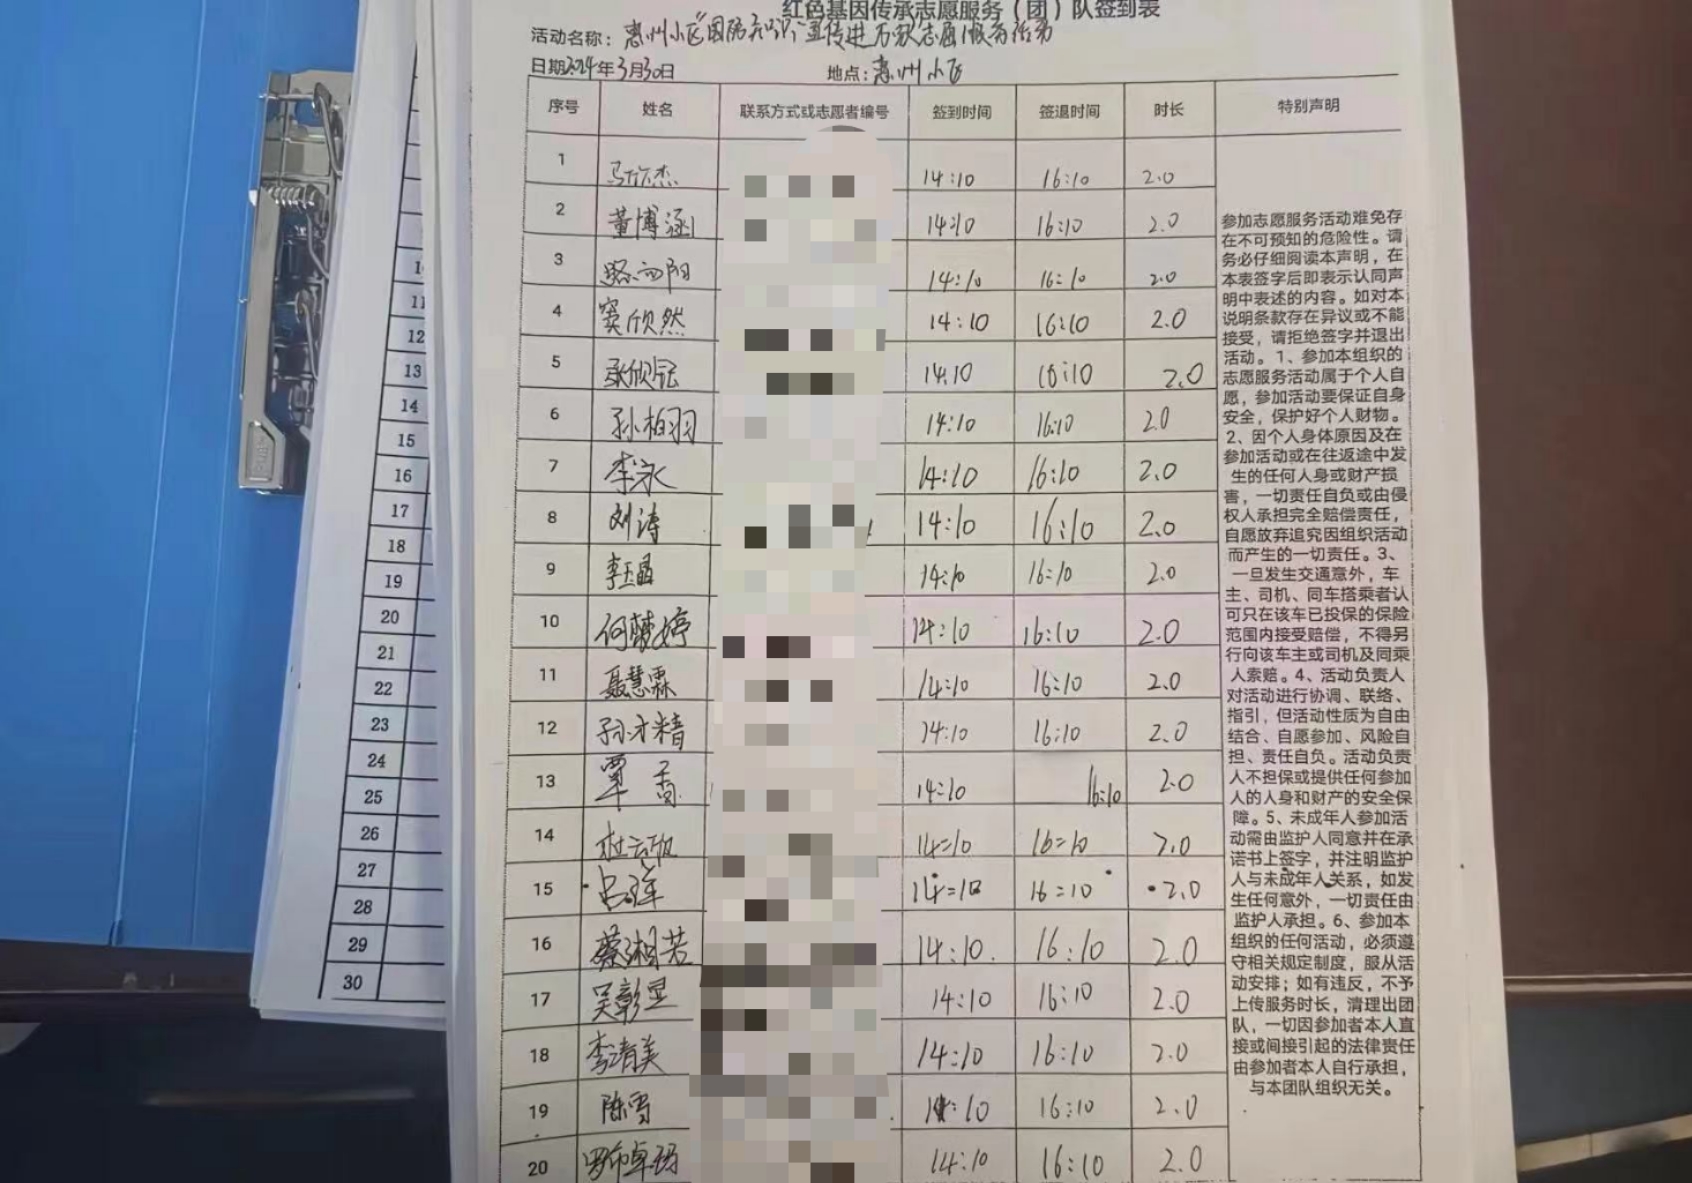 红色基因传承志愿服务（团）队签到表
活动名称：惠州小区"国防知识"宣传进万家志愿服务活动
日期2024年3月30日 地点：惠州小区
序号 姓名 联系方式或志愿者编号 签到时间 签退时间 时长 特别声明
1 14:10 16:10 2.0
2 董博涵 14:10 16:10 2.0
3 14:10 16:10 2.0
4 窦欣然 14:10 16:10 2.0
5 14:10 16:10 2.0
6 孙柏羽 14:10 16:10 2.0
7 李永 14:10 16:10 2.0
8 刘涛 14:10 16:10 2.0
9 14:10 16:10 2.0
10 何婷 14:10 16:10 2.0
11 聂慧霖 14:10 16:10 2.0
12 14:10 16:10 2.0
13 覃香 14:10 16:10 2.0
14 杜云 14:10 16:10 2.0
15 吕 14:10 16:10 2.0
16 蔡湘芳 14:10 16:10 2.0
17 吴彰 14:10 16:10 2.0
18 李清美 14:10 16:10 2.0
19 陈雪 14:10 16:10 2.0
20 罗布卓玛 14:10 16:10 2.0
参加志愿服务活动难免存
在不可预知的危险性。请
务必仔细阅读本声明，在
本表签字后即表示认同声
明中表述的内容。如对本
说明条款存在异议或不能
接受，请拒绝签字并退出
活动。1、参加本组织的
志愿服务活动属于个人自
愿，参加活动要保证自身
安全，保护好个人财物。
2、因个人身体原因及在
参加活动或在往返途中发
生的任何人身或财产损
害，一切责任自负或由侵
权人承担完全赔偿责任，
自愿放弃追究因组织活动
而产生的一切责任。3、
一旦发生交通意外，车
主、司机、同车搭乘者认
可只在该车已投保的保险
范围内接受赔偿，不得另
行向该车主或司机及同乘
人索赔。4、活动负责人
对活动进行协调、联络、
指引，但活动性质为自由
结合、自愿参加、风险自
担、责任自负。活动负责
人不担保或提供任何参加
人的人身和财产的安全保
障。5、未成年人参加活
动需由监护人同意并在承
诺书上签字，并注明监护
人与未成年人关系，如发
生任何意外，一切责任由
监护人承担。6、参加本
组织的任何活动，必须遵
守相关规定制度，服从活
动安排；如有违反，不予
上传服务时长，清理出团
队，一切因参加者本人直
接或间接引起的法律责任
由参加者本人自行承担，
与本团队组织无关。
11
12
13
14
15
16
17
18
19
20
21
22
23
24
25
26
27
28
29
30